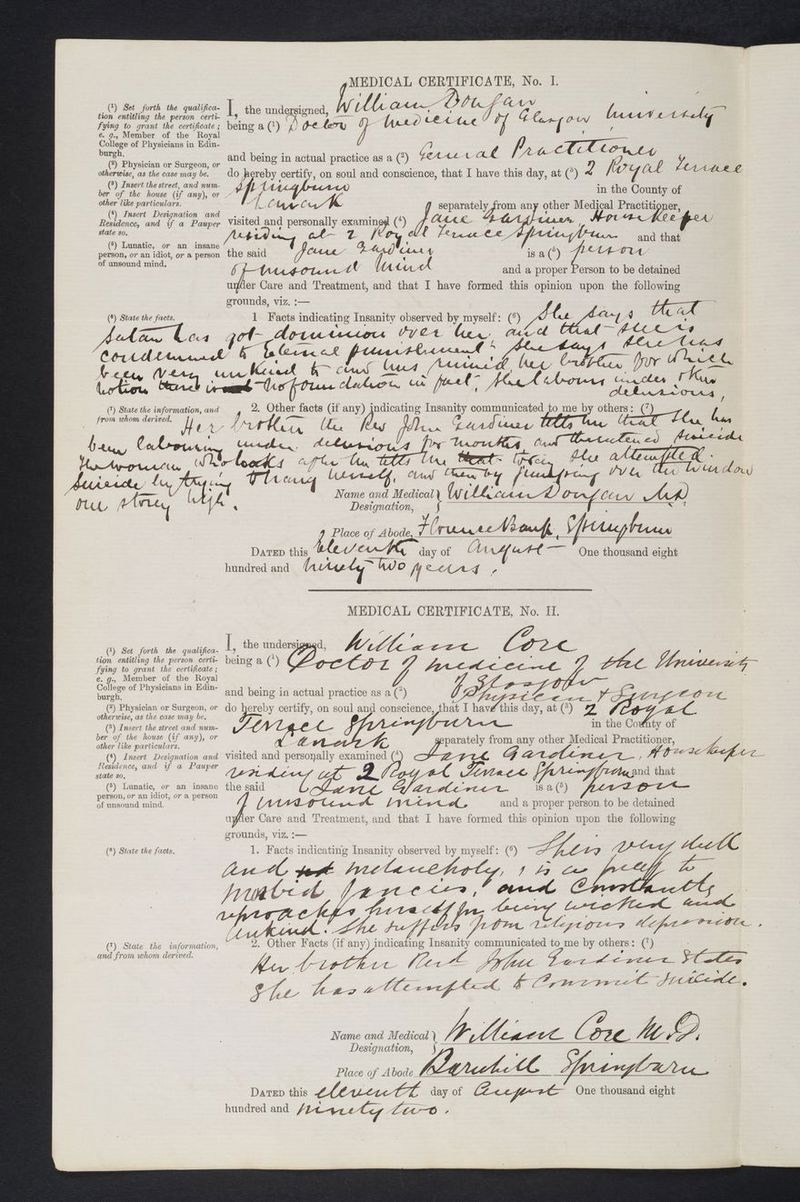 MEDICAL CERTIFICATE, No. I.
(1) Set forth the qualifica-
tion entitling the person certi-
fying to grant the certificate;
e. g., Member of the Royal
College of Physicians in Edin-
burgh.
(2) Physician or Surgeon, or
otherwise, as the case may be.
(3) Insert the street, and num-
ber of the house (if any), or
other like particulars.
(4) Insert Designation and
Residence, and if a Pauper
state so.
(5) Lunatic, or an insane
person, or an idiot, or a person
of unsound mind.
I, the undersigned, William Dougan
being a (1) Doctor of Medicine of Glasgow University
and being in actual practice as a (2) General Practitioner
do hereby certify, on soul and conscience, that I have this day, at (3) 2 Royal Terrace
Springburn in the County of
Lanark separately from any other Medical Practitioner,
visited and personally examined (4) Jane Gardiner, Housekeeper
residing at 2 Royal Terrace Springburn and that
the said Jane Gardiner is a (5) person
of unsound mind and a proper Person to be detained
under Care and Treatment, and that I have formed this opinion upon the following
grounds, viz. :—
(6) State the facts.
1 Facts indicating Insanity observed by myself: (6) She says that
Satan has got dominion over her and that she is
condemned to Eternal punishment. She says she has
been very unkind to and has ruined her brother for which
notion there is no foundation in fact, She labours under other
delusions,
(7) State the information, and
from whom derived.
2. Other facts (if any) indicating Insanity communicated to me by others: (7)
Her brother the Rev John Gardiner tells me that she has
been labouring under delusions for months and threatened suicide
The woman who looks after her tells me today she attempted
Suicide by trying to hang herself, and then by jumping over the window
one storey high.
Name and Medical Designation, William Dougan MD
Place of Abode, Florence Bank, Springburn
DATED this Eleventh day of August One thousand eight
hundred and ninety two years.
MEDICAL CERTIFICATE, No. II.
(1) Set forth the qualifica-
tion entitling the person certi-
fying to grant the certificate;
e. g., Member of the Royal
College of Physicians in Edin-
burgh.
(2) Physician or Surgeon, or
otherwise, as the case may be.
(3) Insert the street and num-
ber of the house (if any), or
other like particulars.
(4) Insert Designation and
Residence, and if a Pauper
state so.
(5) Lunatic, or an insane
person, or an idiot, or a person
of unsound mind.
I, the undersigned, William Core
being a (1) Doctor of Medicine of the University
of Glasgow
and being in actual practice as a (2) Physician & Surgeon
do hereby certify, on soul and conscience, that I have this day, at (3) 2 Royal
Terrace Springburn in the County of
Lanark separately from any other Medical Practitioner,
visited and personally examined (4) Jane Gardiner, Housekeeper
residing at 2 Royal Terrace Springburn and that
the said Jane Gardiner is a (5) person
of unsound mind and a proper person to be detained
under Care and Treatment, and that I have formed this opinion upon the following
grounds, viz. :—
(6) State the facts.
1. Facts indicating Insanity observed by myself: (6) She is very dull
and melancholy, is a prey to
morbid fancies, and constantly
reproaches herself for being wicked and
unkind. She suffers from religious depression.
(7) State the information,
and from whom derived.
2. Other Facts (if any) indicating Insanity communicated to me by others: (7)
Her brother Revd John Gardiner States
She has attempted to commit suicide.
Name and Medical Designation, William Core M.D.
Place of Abode Barnhill Springburn
DATED this eleventh day of August One thousand eight
hundred and ninety two.